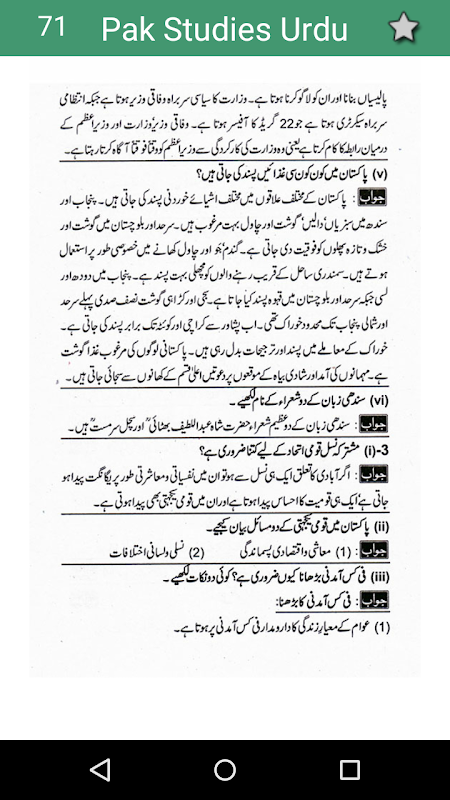 71 Pak Studies Urdu
پالیسیاں بنانا اور ان کو لاگو کرنا ہوتا ہے۔ وزارت کا سیاسی سربراہ وفاقی وزیر ہوتا ہے جبکہ انتظامی
سربراہ سیکرٹری ہوتا ہے جو 22 گریڈ کا آفیسر ہوتا ہے۔ وفاقی وزیر وزارت اور وزیراعظم کے
درمیان رابطہ کا کام کرتا ہے یعنی وہ وزارت کی کارکردگی سے وزیراعظم کو وقتاً فوقتاً آگاہ کرتا رہتا ہے۔
(v) پاکستان میں کون کون سی غذائیں پسند کی جاتی ہیں؟
جواب : پاکستان کے مختلف علاقوں میں مختلف اشیائے خوردنی پسند کی جاتی ہیں۔ پنجاب اور
سندھ میں سبزیاں، دالیں، گوشت اور چاول بہت مرغوب ہیں۔ سرحد اور بلوچستان میں گوشت اور
خشک و تازہ پھلوں کو فوقیت دی جاتی ہے۔ گندم، جَو اور چاول کھانے میں خصوصی طور پر استعمال
ہوتے ہیں۔ سمندری ساحل کے قریب رہنے والوں کو مچھلی بہت پسند ہے۔ پنجاب میں دودھ اور
لسی جبکہ سرحد اور بلوچستان میں قہوہ پسند کیا جاتا ہے۔ سجی اور کڑاہی گوشت نصف صدی پہلے سرحد
اور شمالی پنجاب تک محدود خوراک تھی۔ اب پشاور سے کراچی اور کوئٹہ تک برابر پسند کی جاتی ہے۔
خوراک کے معاملے میں پسند اور ترجیحات بدل رہی ہیں۔ پاکستانی لوگوں کی مرغوب غذا گوشت
ہے۔ مہمانوں کی آمد اور شادی بیاہ کے موقعوں پر دعوتیں اعلیٰ قسم کے کھانوں سے سجائی جاتی ہیں۔
(vi) سندھی زبان کے دو شعراء کے نام لکھیے۔
جواب : سندھی زبان کے دو عظیم شعراء حضرت شاہ عبداللطیف بھٹائیؒ اور سچل سرمستؒ ہیں۔
3-(i) مشترکہ نسل قومی اتحاد کے لیے کتنا ضروری ہے؟
جواب : اگر آبادی کا تعلق ایک ہی نسل سے ہو تو ان میں نفسیاتی و معاشرتی طور پر یگانگت پیدا ہو
جاتی ہے، ایک ہی قومیت کا احساس پیدا ہوتا ہے اور ان میں قومی یکجہتی بھی پیدا ہوتی ہے۔
(ii) پاکستان میں قومی یکجہتی کے دو مسائل بیان کیجیے۔
جواب : (1) معاشی و اقتصادی پسماندگی (2) نسلی و لسانی اختلافات
(iii) فی کس آمدنی بڑھانا کیوں ضروری ہے؟ کوئی دو نکات لکھیے۔
جواب : فی کس آمدنی کا بڑھنا:
(1) عوام کے معیارِ زندگی کا دارومدار فی کس آمدنی پر ہوتا ہے۔